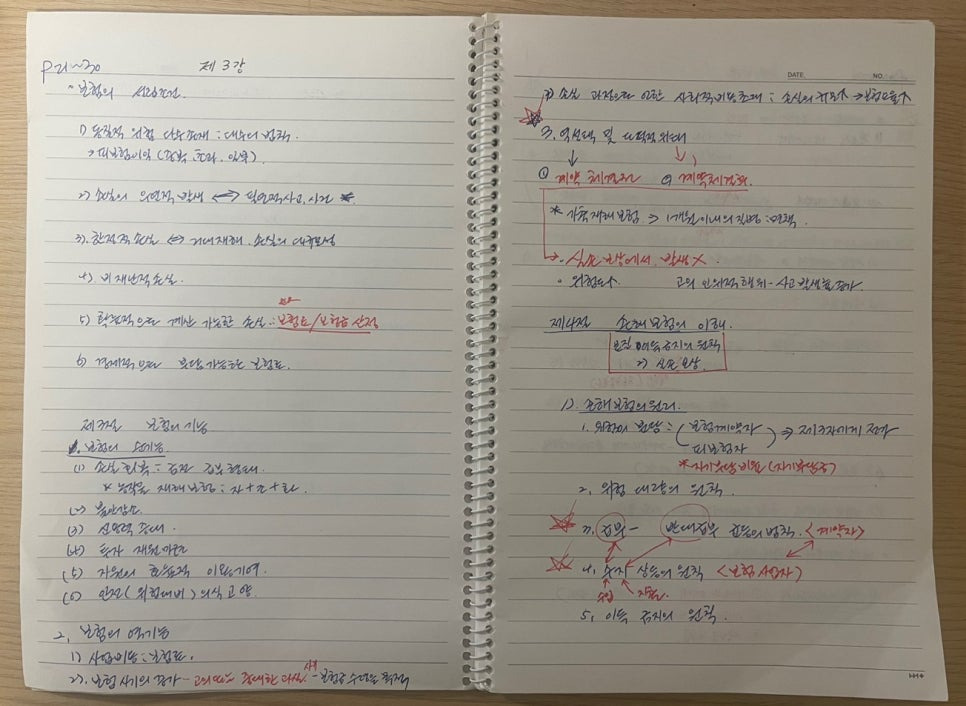 P21~30 제 3강
~ 보험의 성립조건
1) 동질적 위험 다수 존재 : 대수의 법칙.
→ 피보험이익 (중복, 초과, 일부).
2) 손실의 우연적 발생 ⟺ 필연적 사고, 사건 *
3) 한정적 손실 ⟺ 거대재해, 손실의 대규모성
4) 비재난적 손실.
5) 확률적으로 계산 가능한 손실 : 보험료/보험금 산정
6) 경제적으로 부담가능한 보험료.
제3절 보험의 기능
1. 보험의 순기능
(1) 손실 회복 :
* 농작물 재해보험 : 자+조+화
(2) 불안감소
(3) 신용력 증대.
(4) 투자 재원마련
(5) 자원의 효율적 이용기여.
(6) 안전(위험대비) 의식 고양.
2. 보험의 역기능
1) 사업비용 : 보험료.
2) 보험사기의 증가 - 고의 또는 중대한 과실. 사기 - 보험금 수령을 목적
DATE. NO.
3) 손실 과장으로 인한 사회적비용초래 : 손실의 규모↑ → 보험요율↑
3. 역선택 및 도덕적위태
① 계약 체결전 ② 계약체결후
* 가축재해보험 ⇒ 1개월 이내의 질병 : 면책
→ 실손보상에서 발생 X
◦ 위험도↑ 고의 인위적 행위 - 사고 발생률 증가
제4절 손해보험의 이해.
이득금지의 원칙
실손보상.
1). 손해보험의 원리.
1. 위험의 분담 : (보험계약자 ) ⇒ 제3자에게 전가
피보험자
* 자기부담비율 (자기부담금)
2. 위험 대량의 원칙.
3. 급부 - 반대급부 균등의 법칙. <계약자>
4. 수지 상등의 원칙 <보험사업자>
수입 지출
5. 이득 금지의 원칙.